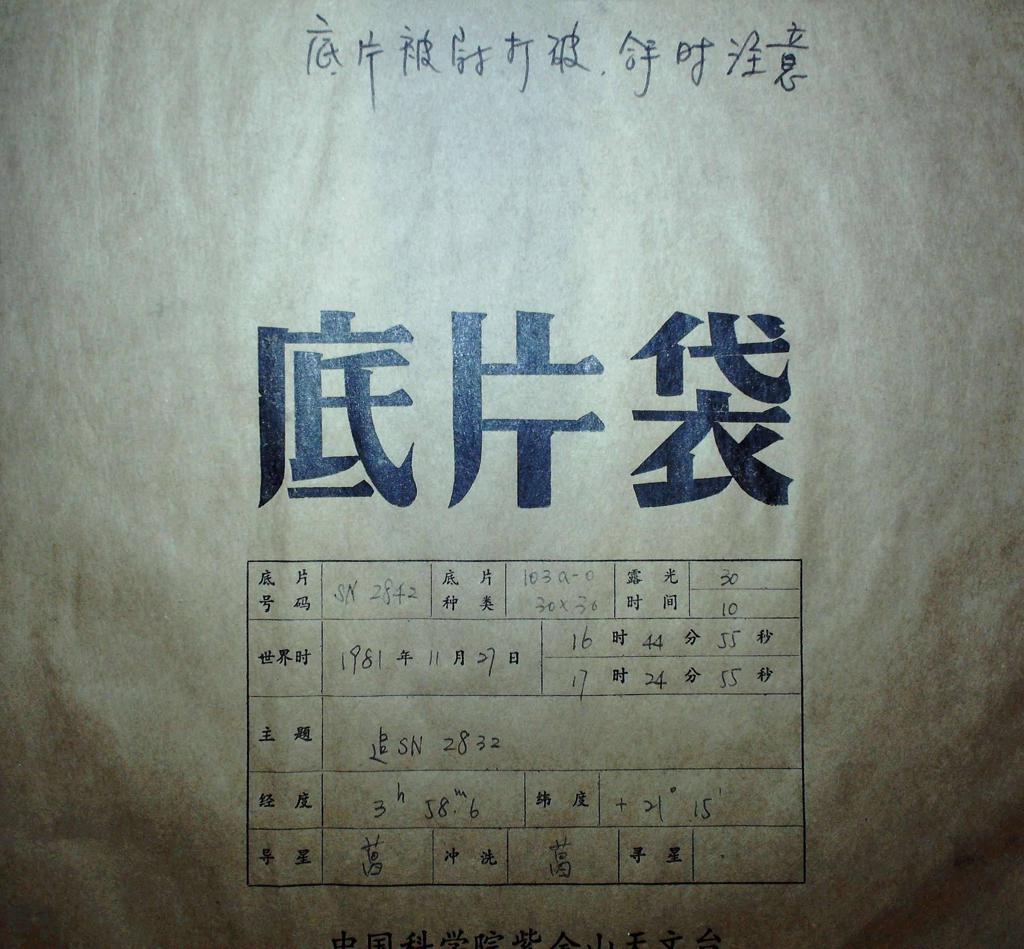 底片被打破.时注意
底片袋
底片号码 SN 2842 底片种类 103a-O 30×30 露光时间 30 10
世界时 1981年11月27日 16时44分55秒
17时24分55秒
主题 追SN 2832
经度 3ʰ 58.ᵐ6 纬度 +21°15′
导星 葛 冲洗 葛 寻星
中国科学院紫金山天文台